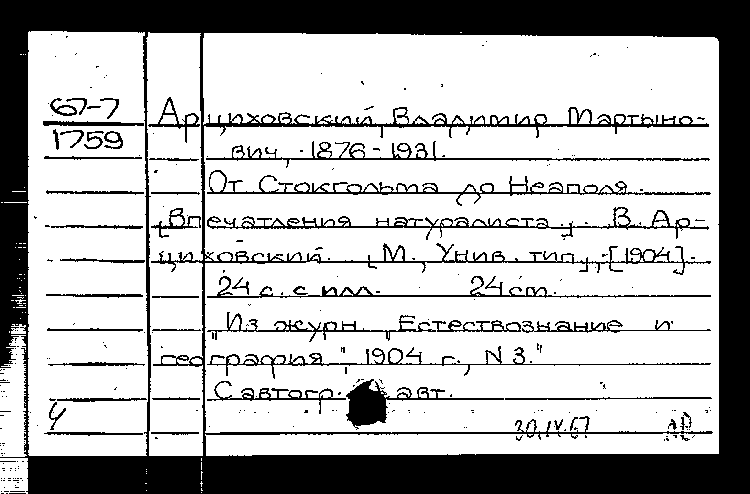 67-7 Арциховский, Владимир Мартыно-
1759 вич, 1876-1931.
От Стокгольма до Неаполя.
[Впечатления натуралиста]. В. Ар-
циховский. [М., Унив. тип.], [1904].
24 с. с илл. 24 cm.
"Из журн. "Естествознание и
география", 1904 г., N 3."
С автогр. авт.
30.IX.67 АВ